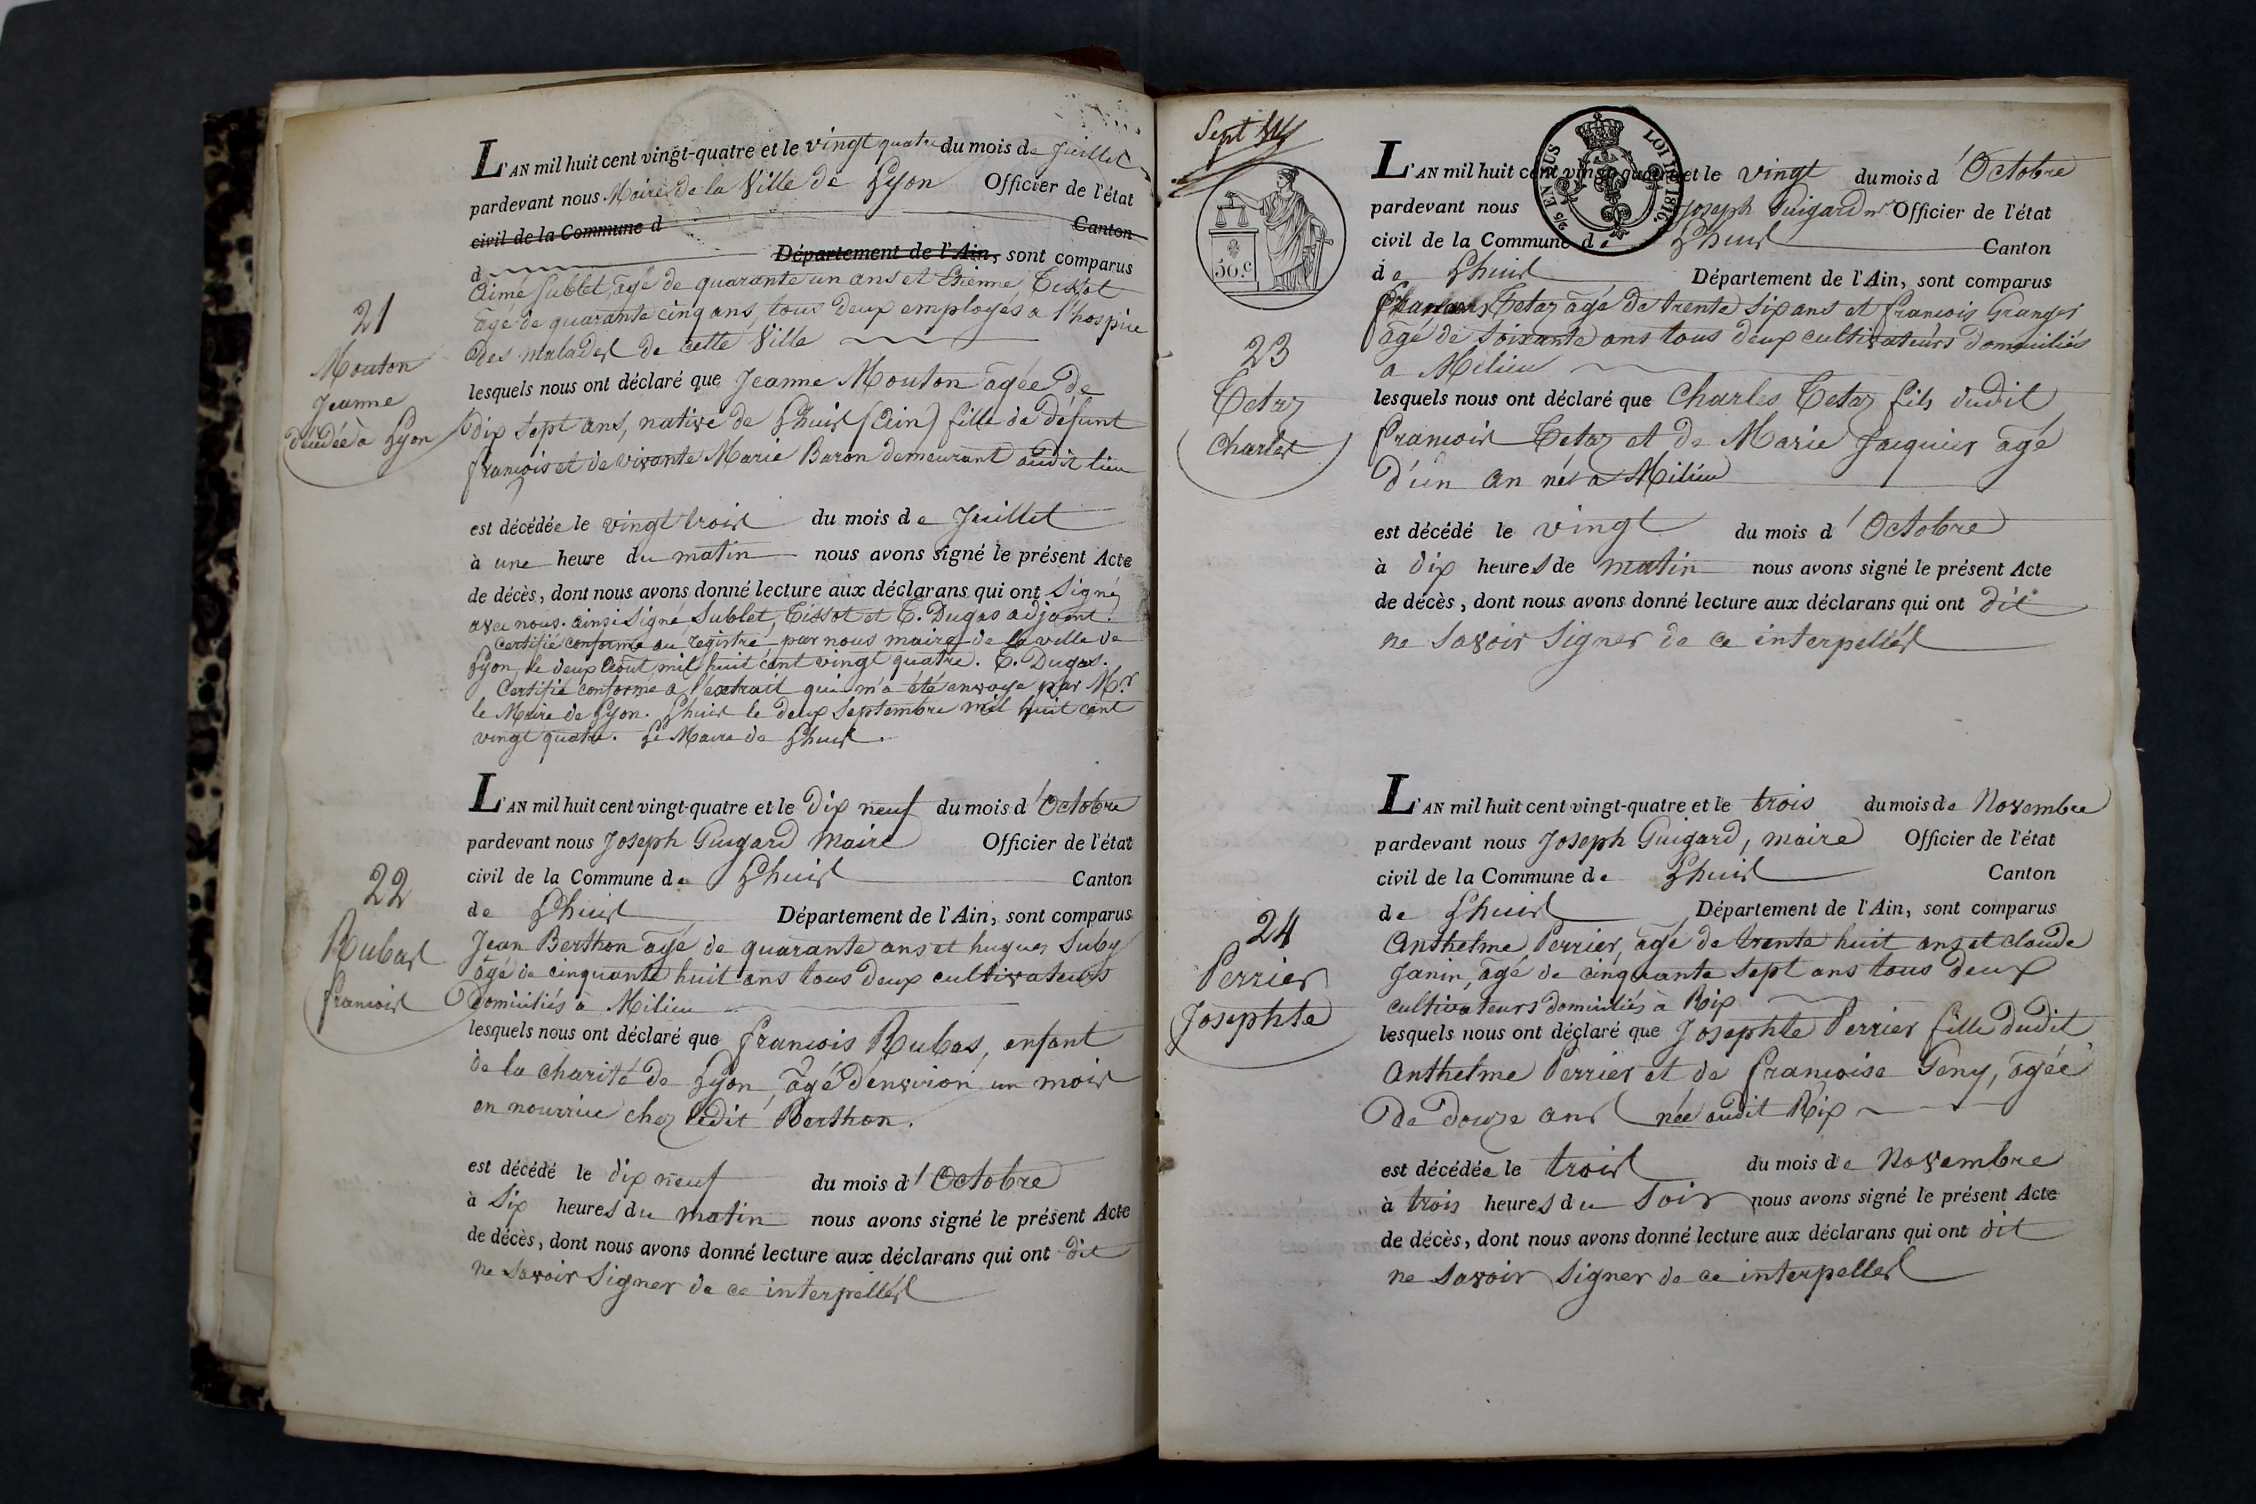 L'AN mil huit cent vingt-quatre et le vingt quatre du mois de Juillet
pardevant nous Maire de la Ville de Lyon Officier de l'état
civil de la Commune d Canton
d Département de l'Ain, sont comparus
Aimé Sublet, âgé de quarante un ans et Etienne Tissot
âgé de quarante cinq ans, tous deux employés a l'hospice
des malades de cette Ville
lesquels nous ont déclaré que Jeanne Mouton agée de
dix sept ans, native de Lhuis (Ain) fille de défunt
françois et de vivante Marie Baron demeurant audit lieu
est décédée le vingt trois du mois de Juillet
à une heure du matin nous avons signé le présent Acte
de décès, dont nous avons donné lecture aux déclarans qui ont signé
avec nous. ainsi signé Sublet, Tissot et T. Dugas adjoint.
Certifié conforme au registre par nous maire de la ville de
Lyon, le deux Aout mil huit cent vingt quatre. T. Dugas.
Certifié conforme a l'extrait qui m'a été envoyé par Mr
le Maire de Lyon. Lhuis le deux Septembre mil huit cent
vingt quatre. Le Maire de Lhuis.
21
Mouton
Jeanne
décédée à Lyon
L'AN mil huit cent vingt-quatre et le dix neuf du mois d'Octobre
pardevant nous Joseph Guigard Maire Officier de l'état
civil de la Commune de Lhuis Canton
de Lhuis Département de l'Ain, sont comparus
Jean Berthon agé de quarante ans et hugues Suby
âgé de cinquante huit ans tous deux cultivateurs
domiciliés à Milieu
lesquels nous ont déclaré que françois Rubas, enfant
de la charité de Lyon, âgé d'environ un mois
en nourrice chez ledit Berthon.
est décédé le dix neuf du mois d'Octobre
à six heures du matin nous avons signé le présent Acte
de décès, dont nous avons donné lecture aux déclarans qui ont dit
ne savoir signer de ce interpellés
22
Rubas
francois
Sept
50.c
EN SUS
LOI DE 1816.
L'AN mil huit cent vingt-quatre et le vingt du mois d'Octobre
pardevant nous Joseph Guigard Mre Officier de l'état
civil de la Commune de Lhuis Canton
de Lhuis Département de l'Ain, sont comparus
Tetaz âgé de trente six ans et francois Granger
âgé de soixante ans tous deux cultivateurs domiciliés
a Milieu
lesquels nous ont déclaré que Charles Tetaz fils dudit
francois Tetaz et de Marie Jacquier agé
d'un an né à Milieu
est décédé le vingt du mois d'Octobre
à dix heures de matin nous avons signé le présent Acte
de décès, dont nous avons donné lecture aux déclarans qui ont dit
ne savoir signer de ce interpellés
23
Tetaz
Charles
L'AN mil huit cent vingt-quatre et le trois du mois de Novembre
pardevant nous Joseph Guigard, maire Officier de l'état
civil de la Commune de Lhuis Canton
de Lhuis Département de l'Ain, sont comparus
Anthelme Perrier, âgé de trente huit ans et claude
Janin, âgé de cinquante sept ans tous deux
cultivateurs domiciliés à Rix
lesquels nous ont déclaré que Josephte Perrier fille dudit
Anthelme Perrier et de francoise Geny, âgée
de douze ans née audit Rix
est décédée le trois du mois de Novembre
à trois heures du soir nous avons signé le présent Acte
de décès, dont nous avons donné lecture aux déclarans qui ont dit
ne savoir signer de ce interpellés
24
Perrier
Josephte